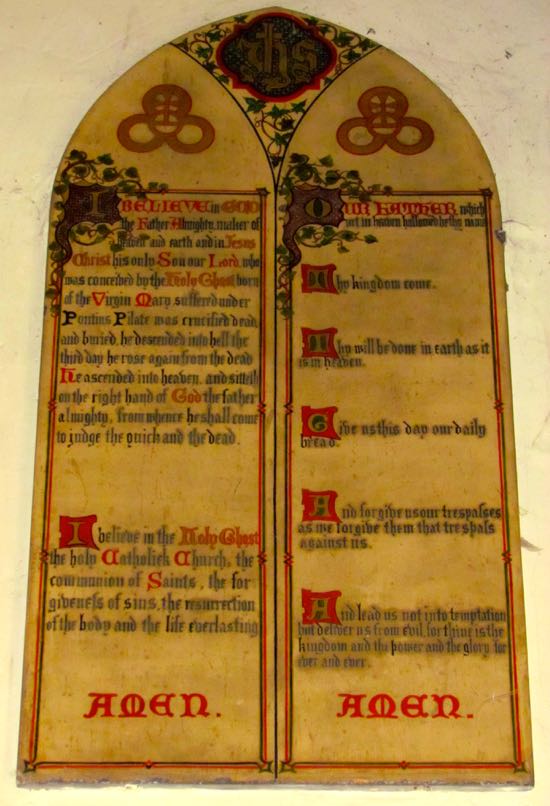 IHS
I BELIEVE in GOD
the Father Almighty, maker of
heaven and earth and in Jesus
Christ his only Son our Lord, who
was conceived by the Holy Ghost born
of the Virgin Mary, suffered under
Pontius Pilate was crucified dead,
and buried, he descended into hell the
third day he rose again from the dead
He ascended into heaven, and sitteth
on the right hand of God the father
almighty, from whence he shall come
to judge the quick and the dead.
I believe in the Holy Ghost
the holy Catholick Church, the
communion of Saints, the for
giveness of sins, the resurrection
of the body and the life everlasting
AMEN.
OUR FATHER which
art in heaven hallowed be thy name
Thy kingdom come.
Thy will be done in earth as it
is in heaven.
Give us this day our daily
bread.
And forgive us our trespasses
as we forgive them that trespass
against us.
And lead us not into temptation
but deliver us from evil, for thine is the
kingdom and the power and the glory for
ever and ever.
AMEN.